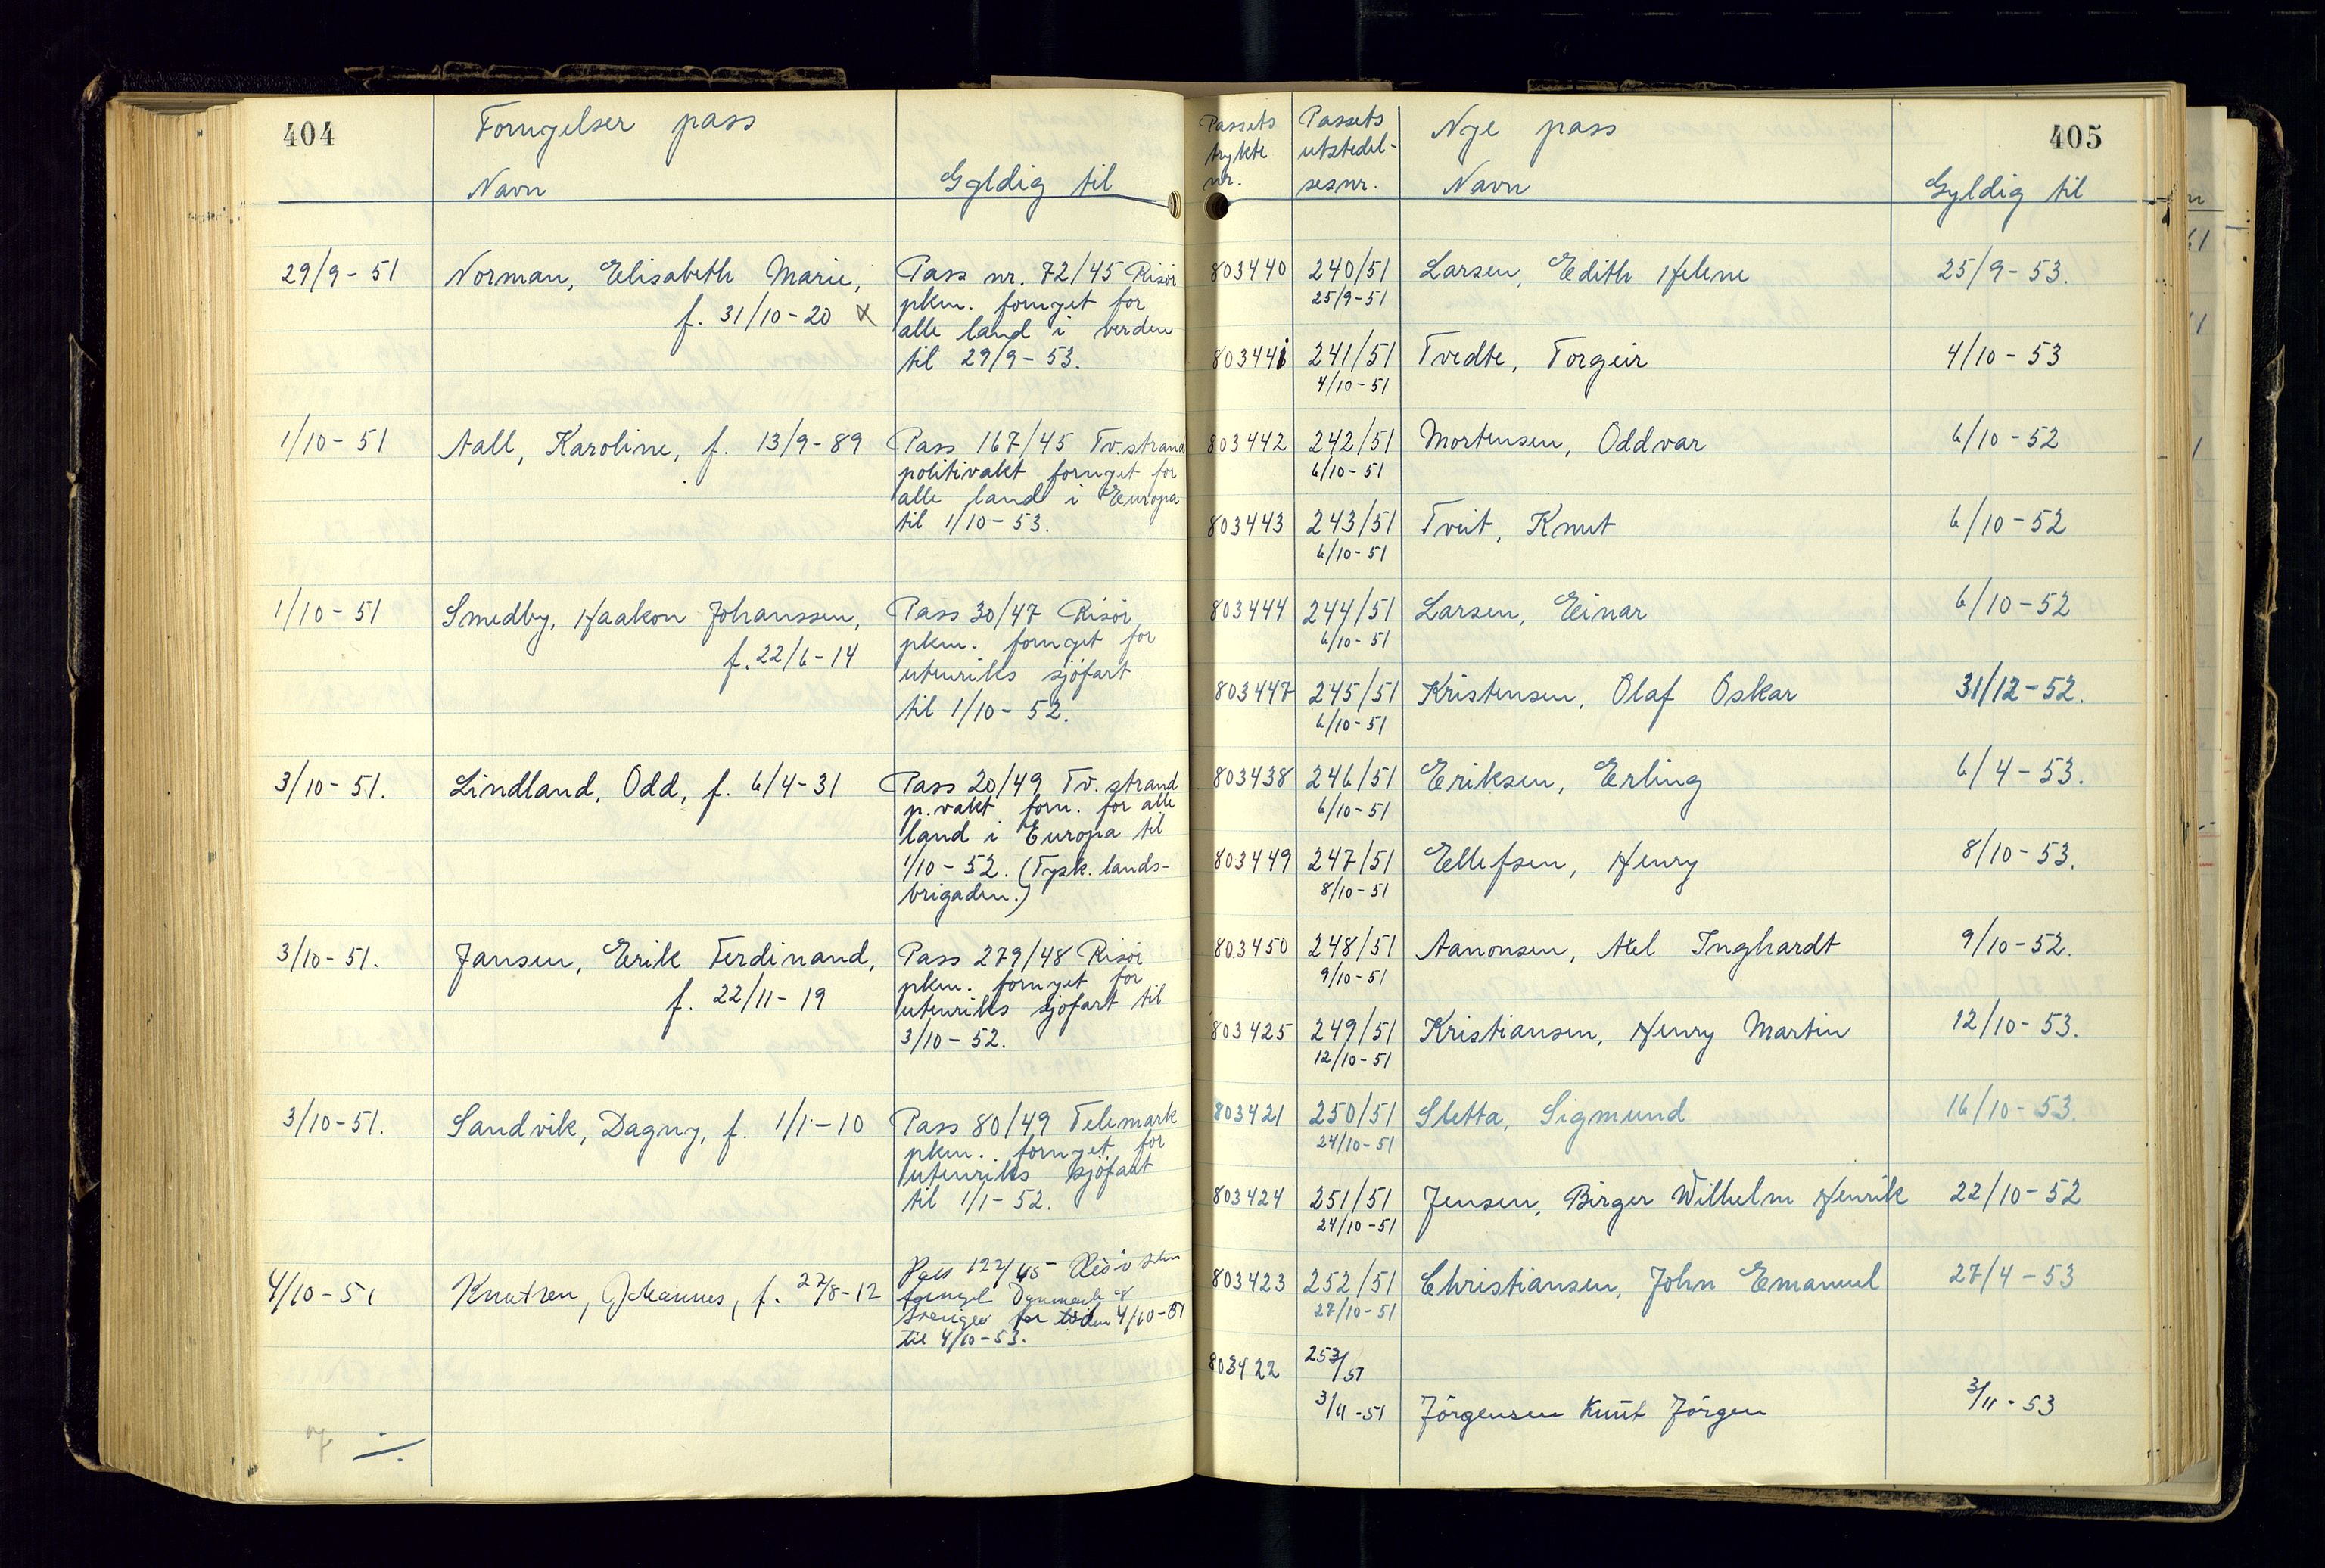 404
Fornyelser pass
Navn
Gyldig til
29/9-51
Norman, Elisabeth Marie,
f. 31/10-20 x
Pass nr. 72/45 Risör
pkm. fornyet for
alle land i verden
til 29/9-53.
1/10-51
Aall, Karoline, f. 13/9-89
Pass 167/45 Tv.strand
politivakt fornyet for
alle land i Europa
til 1/10-53.
1/10-51
Smedby, Haakon Johanssen,
f. 22/6-14
Pass 30/47 Risör
pkm. fornyet for
utenriks sjöfart
til 1/10-52.
3/10-51.
Lindland, Odd, f. 6/4-31
Pass 20/49 Tv. strand
p.vakt forn. for alle
land i Europa til
1/10-52. (Tysk. lands-
brigaden.)
3/10-51.
Jansen, Erik Ferdinand,
f. 22/11-19
Pass 279/48 Risör
pkm. fornyet for
utenriks sjöfart til
3/10-52.
3/10-51.
Sandvik, Dagny, f. 1/1-10
Pass 80/49 Telemark
pkm. fornyet for
utenriks sjöfart
til 1/1-52.
4/10-51
Knutsen, Johannes, f. 27/8-12
Pass 122/45 Risör
Danmark
for tiden 4/10-51
til 4/10-53.
7
405
Passets
trykte
nr.
Passets
utstedel-
sesnr.
Nye pass
Navn
Gyldig til
803440 240/51 Larsen, Edith Helene 25/9-53.
25/9-51
803441 241/51 Tvedte, Torgeir 4/10-53
4/10-51
803442 242/51 Mortensen, Oddvar 6/10-52
6/10-51
803443 243/51 Tveit, Knut 6/10-52
6/10-51
803444 244/51 Larsen, Einar 6/10-52
6/10-51
803447 245/51 Kristensen, Olaf Oskar 31/12-52.
6/10-51
803438 246/51 Eriksen, Erling 6/4-53.
6/10-51
803449 247/51 Ellefsen, Henry 8/10-53.
8/10-51
803450 248/51 Aanonsen, Axel Inghardt 9/10-52.
9/10-51
803425 249/51 Kristiansen, Henry Martin 12/10-53.
12/10-51
803421 250/51 Sletta, Sigmund 16/10-53.
24/10-51
803424 251/51 Jensen, Birger Wilhelm Henrik 22/10-52
24/10-51
803423 252/51 Christiansen, John Emanuel 27/4-53
27/10-51
803422 253/51
3/11-51 Jörgensen Knut Jörgen 3/11-53